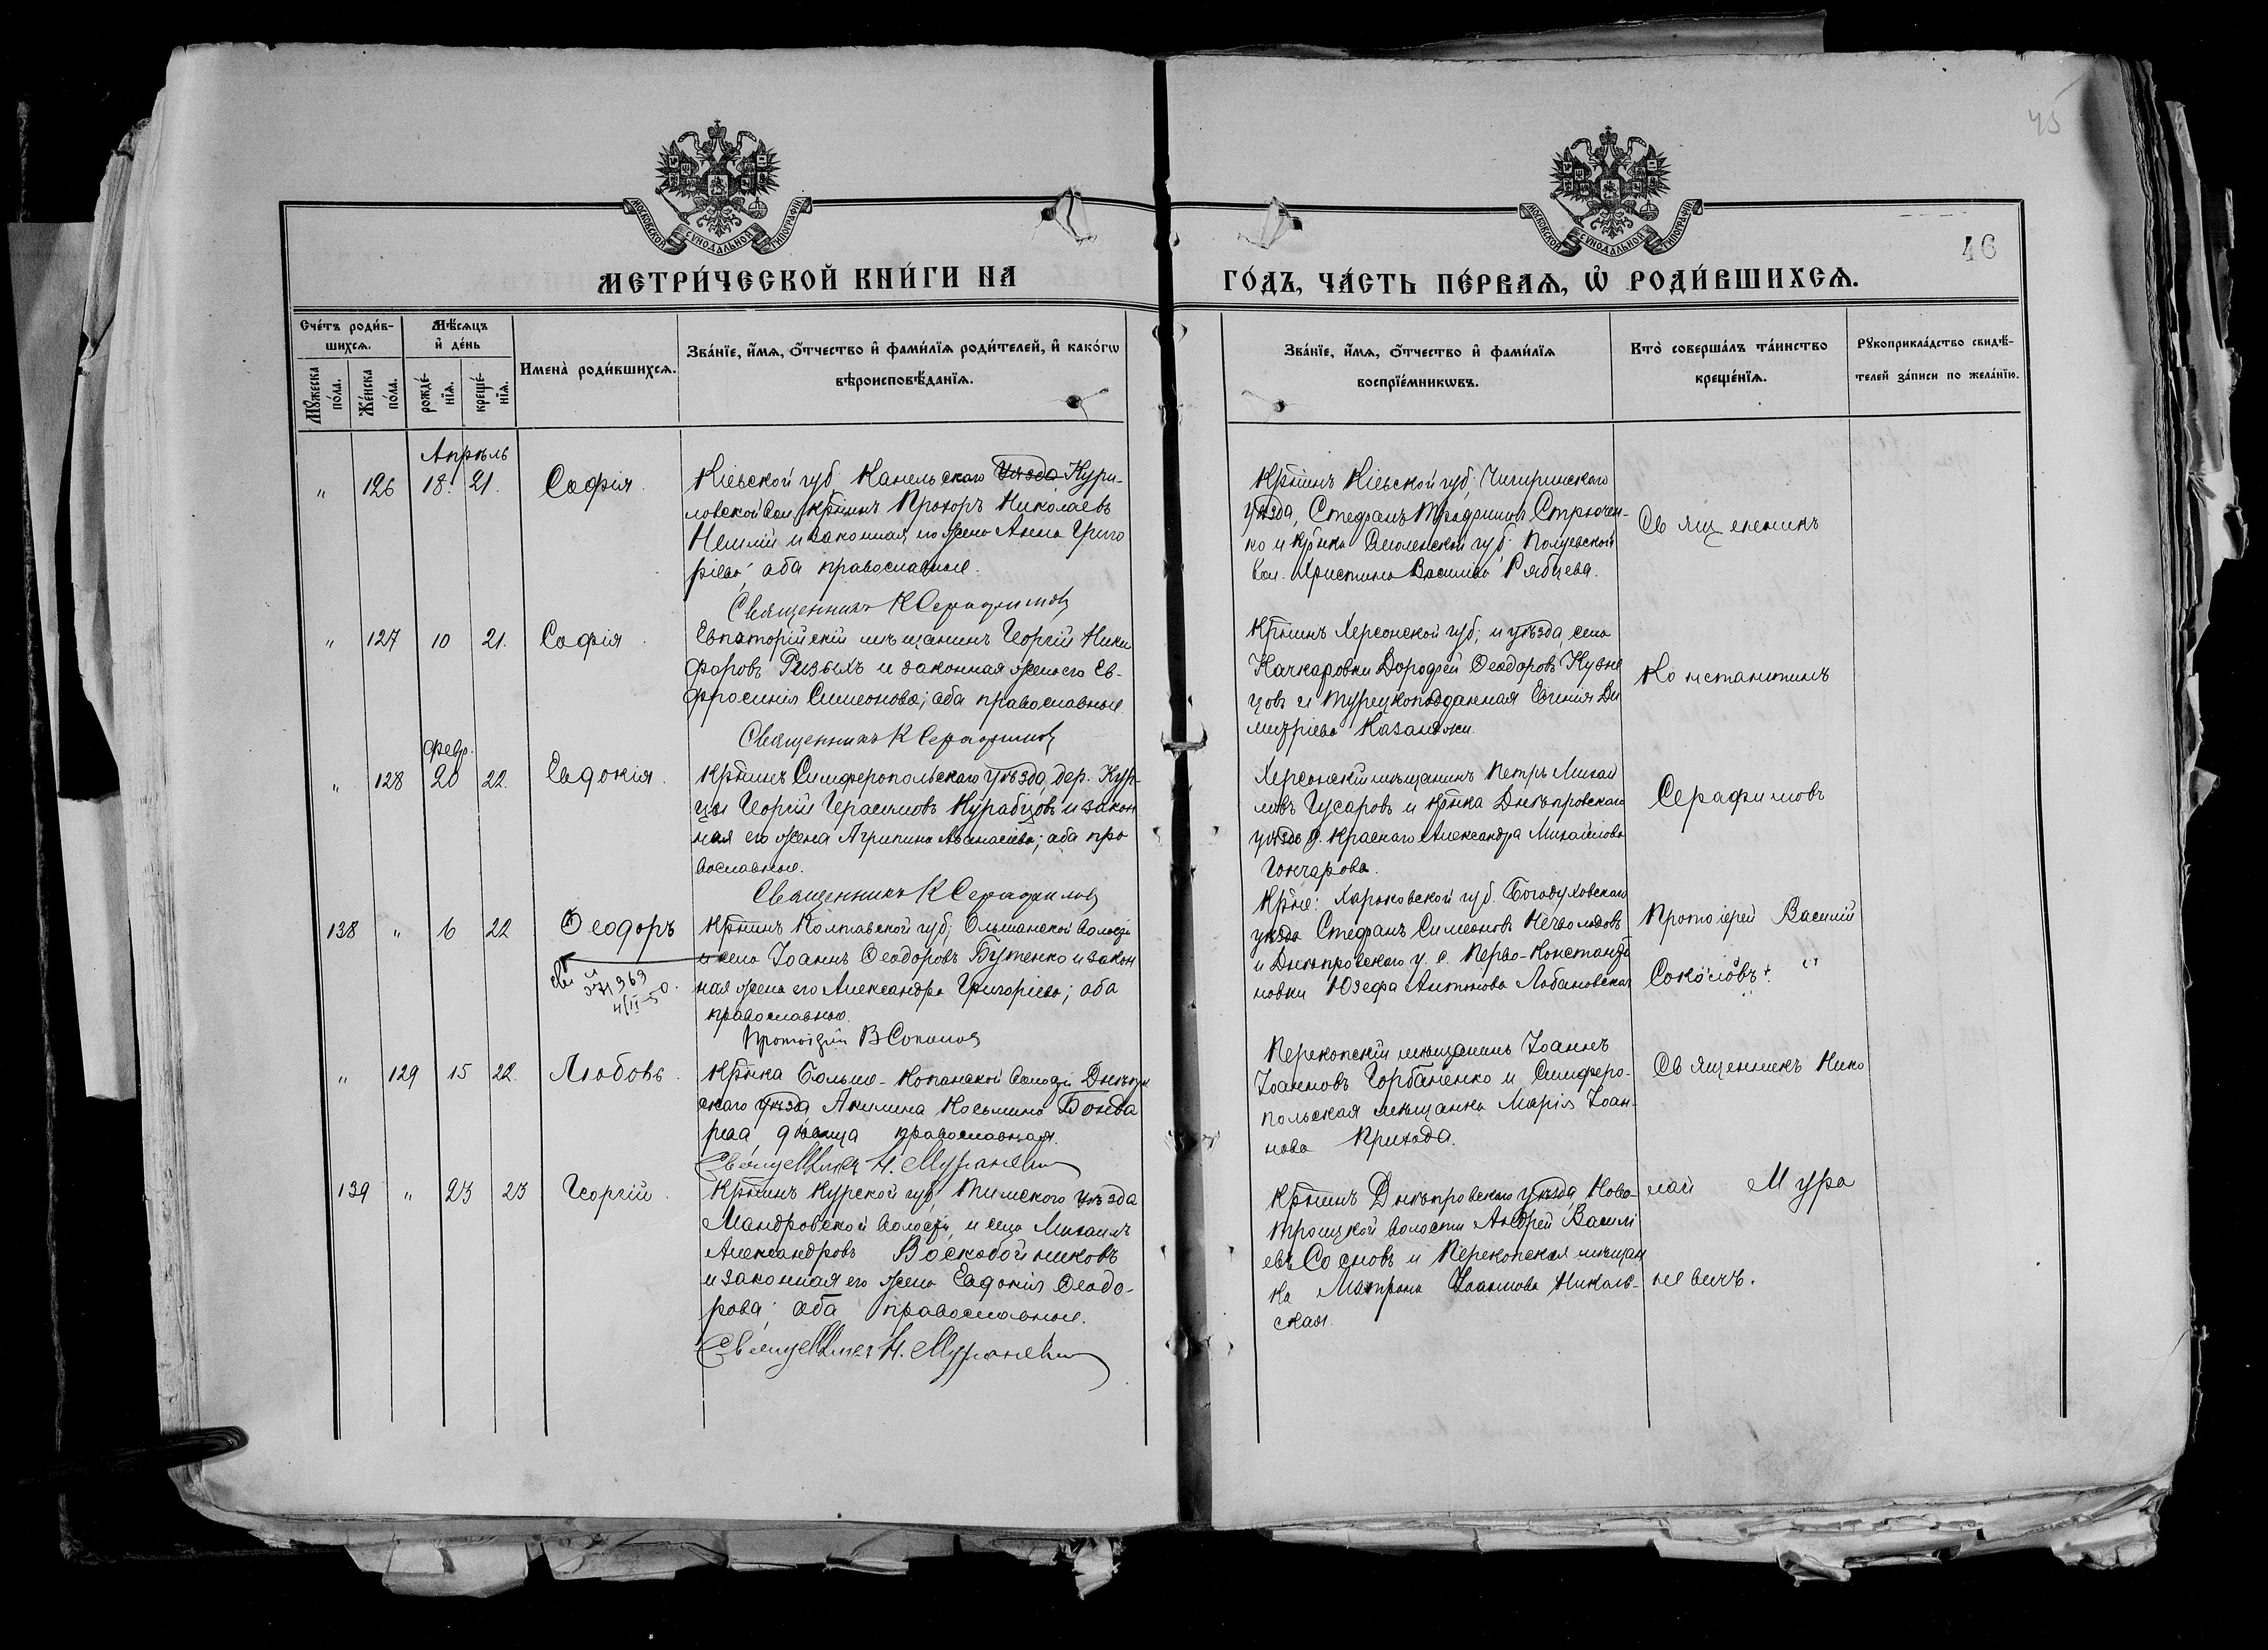 45
46
МОСКОВСКОЙ СѴНОДАЛЬНОЙ ТИПОГРАФІИ
МОСКОВСКОЙ СѴНОДАЛЬНОЙ ТИПОГРАФІИ
МЕТРИ́ЧЕСКОЙ КНИ́ГИ НА
ГО́ДЪ, ЧА́СТЬ ПЕ́РВАѦ, Ѡ҆ РОДИ́ВШИХСѦ.
Сче́тъ роди́в-
шихсѧ.
Мꙋ́жеска по́ла.
Же́нска по́ла.
Мѣ́сѧцъ
и҆ де́нь
рожде́-
нїѧ.
креще́-
нїѧ.
Имена̀ роди́вшихсѧ.
Зва́нїе, и҆́мѧ, ѻ҆́тчество и҆ фами́лїѧ роди́телей, и҆ како́гѡ
вѣроисповѣ́данїѧ.
Зва́нїе, и҆́мѧ, ѻ҆́тчество и҆ фами́лїѧ
воспрїе́мникѡвъ.
Кто̀ соверша́лъ та́инство
креще́нїѧ.
Рꙋкоприкла́дство свидѣ́-
телей за́писи по жела́нїю.
Апрѣль
" 126 18. 21. Софія.
Кіевской губ. Каневскаго уѣзда Кури-
ловской вол. кр̃нинъ Прохоръ Николаевъ
и законная его жена Анна Григо
ріева, аба православные.
Священникъ К Серафимовъ
Кр̃нинъ Кіевской губ; Чигиринскаго
уѣзда, Стефанъ Трофимовъ Стрючен-
ко и кр̃нка Смоленской губ.
вол. Христина Васильева Рябцева.
Священникъ
" 127 10 21. Софія.
Евпаторійскій мѣщанинъ Георгій Ники
форовъ и законная жена его Ев-
фросинія Симеонова; аба православные.
Священникъ К Серафимовъ
Кр̃нинъ Херсонской губ; и уѣзда, села
Качкаровки Дорофей Ѳеодоровъ Кузне
цовъ и турецкоподданная Евгенія Ди
митріева
Константинъ
Февр.
" 128 20 22. Евдокія.
Кр̃нинъ Симферопольскаго уѣзда, дер. Кур-
цы Георгій Герасимовъ и закон
ная его жена Агрипина Аѳанасіева; аба пра
вославные.
Священникъ К Серафимовъ
Херсонскій мѣщанинъ Петръ Михаи
ловъ Гусаровъ и кр̃нка Днѣпровскаго
уѣзда д. Краснаго Александра Михайлова
Гончарова.
Серафимовъ
138 " 6 22 Ѳеодоръ
4/II-50.
Кр̃нинъ Полтавской губ; Ольшанской волости
и села Іоаннъ Ѳеодоровъ Бутенко и закон
ная жена его Александра Григоріева; аба
православные.
Протоіерей В Соколовъ
Кр̃не: Харьковской губ. Богодуховскаго
уѣзда Стефанъ Симеоновъ
и Днѣпровскаго у. с. Перво-Константи
новки Юзефа Антонова Лобановская
Протоіерей Василій
Соколовъ.
" 129 15 22. Любовь.
Кр̃нка Больше-Копанской волости Днѣпров
скаго уѣзда Акилина Косьмина Бонда
рева, дѣвица православная.
Священникъ Н. Мураневичъ
Перекопскій мѣщанинъ Іоаннъ
Іоанновъ Горбаненко и Симферо-
польская мѣщанка Марія Іоан-
нова Приходa.
Священникъ Нико
139 " 23 23 Георгій.
Кр̃нинъ Курской губ, Тимскаго уѣзда
Мандровской волости, и села Михаилъ
Александровъ Воскобойниковъ
и законная его жена Евдокія Ѳеодо-
рова; аба православные.
Священникъ Н. Мураневичъ
Кр̃нинъ Днѣпровскаго уѣзда, Ново-
троицкой волости Андрей Василі
евъ Сосновъ и Перекопская мѣщан
ка Матрона Іоаннова Николь-
ская.
лай Мура
невичъ.